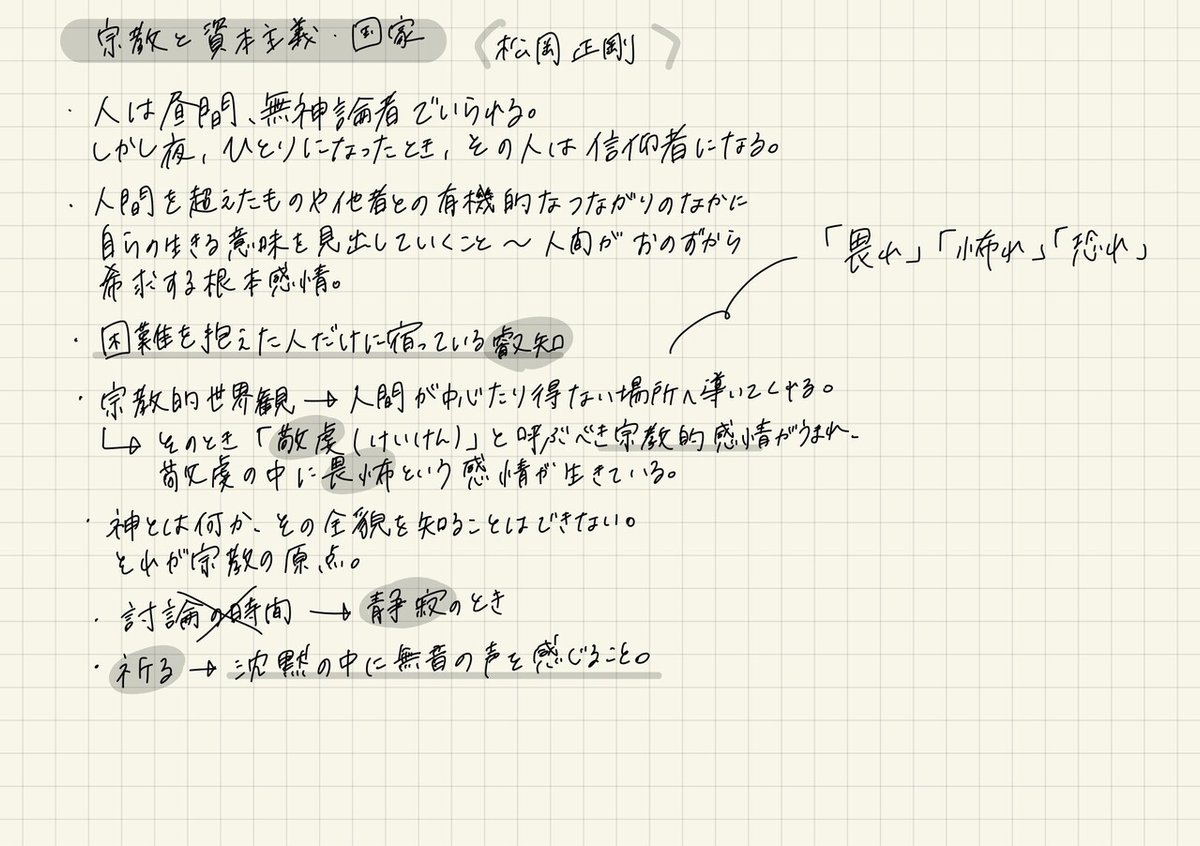 宗教と資本主義・国家 〈松岡正剛〉
・人は昼間、無神論者でいられる。
しかし夜、ひとりになったとき、その人は信仰者になる。
・人間を超えたものや他者との有機的なつながりのなかに
自らの生きる意味を見出していくこと〜人間がおのずから
希求する根本感情。
「畏れ」「怖れ」「恐れ」
・困難を抱えた人だけに宿っている叡知
・宗教的世界観→人間が中心たり得ない場所へ導いてくれる。
↳そのとき「敬虔(けいけん)」と呼ぶべき宗教的感情がうまれ、
敬虔の中に畏怖という感情が生きている。
・神とは何か、その全貌を知ることはできない。
それが宗教の原点。
・討論の時間→静寂のとき
・祈る→沈黙の中に無音の声を感じること。